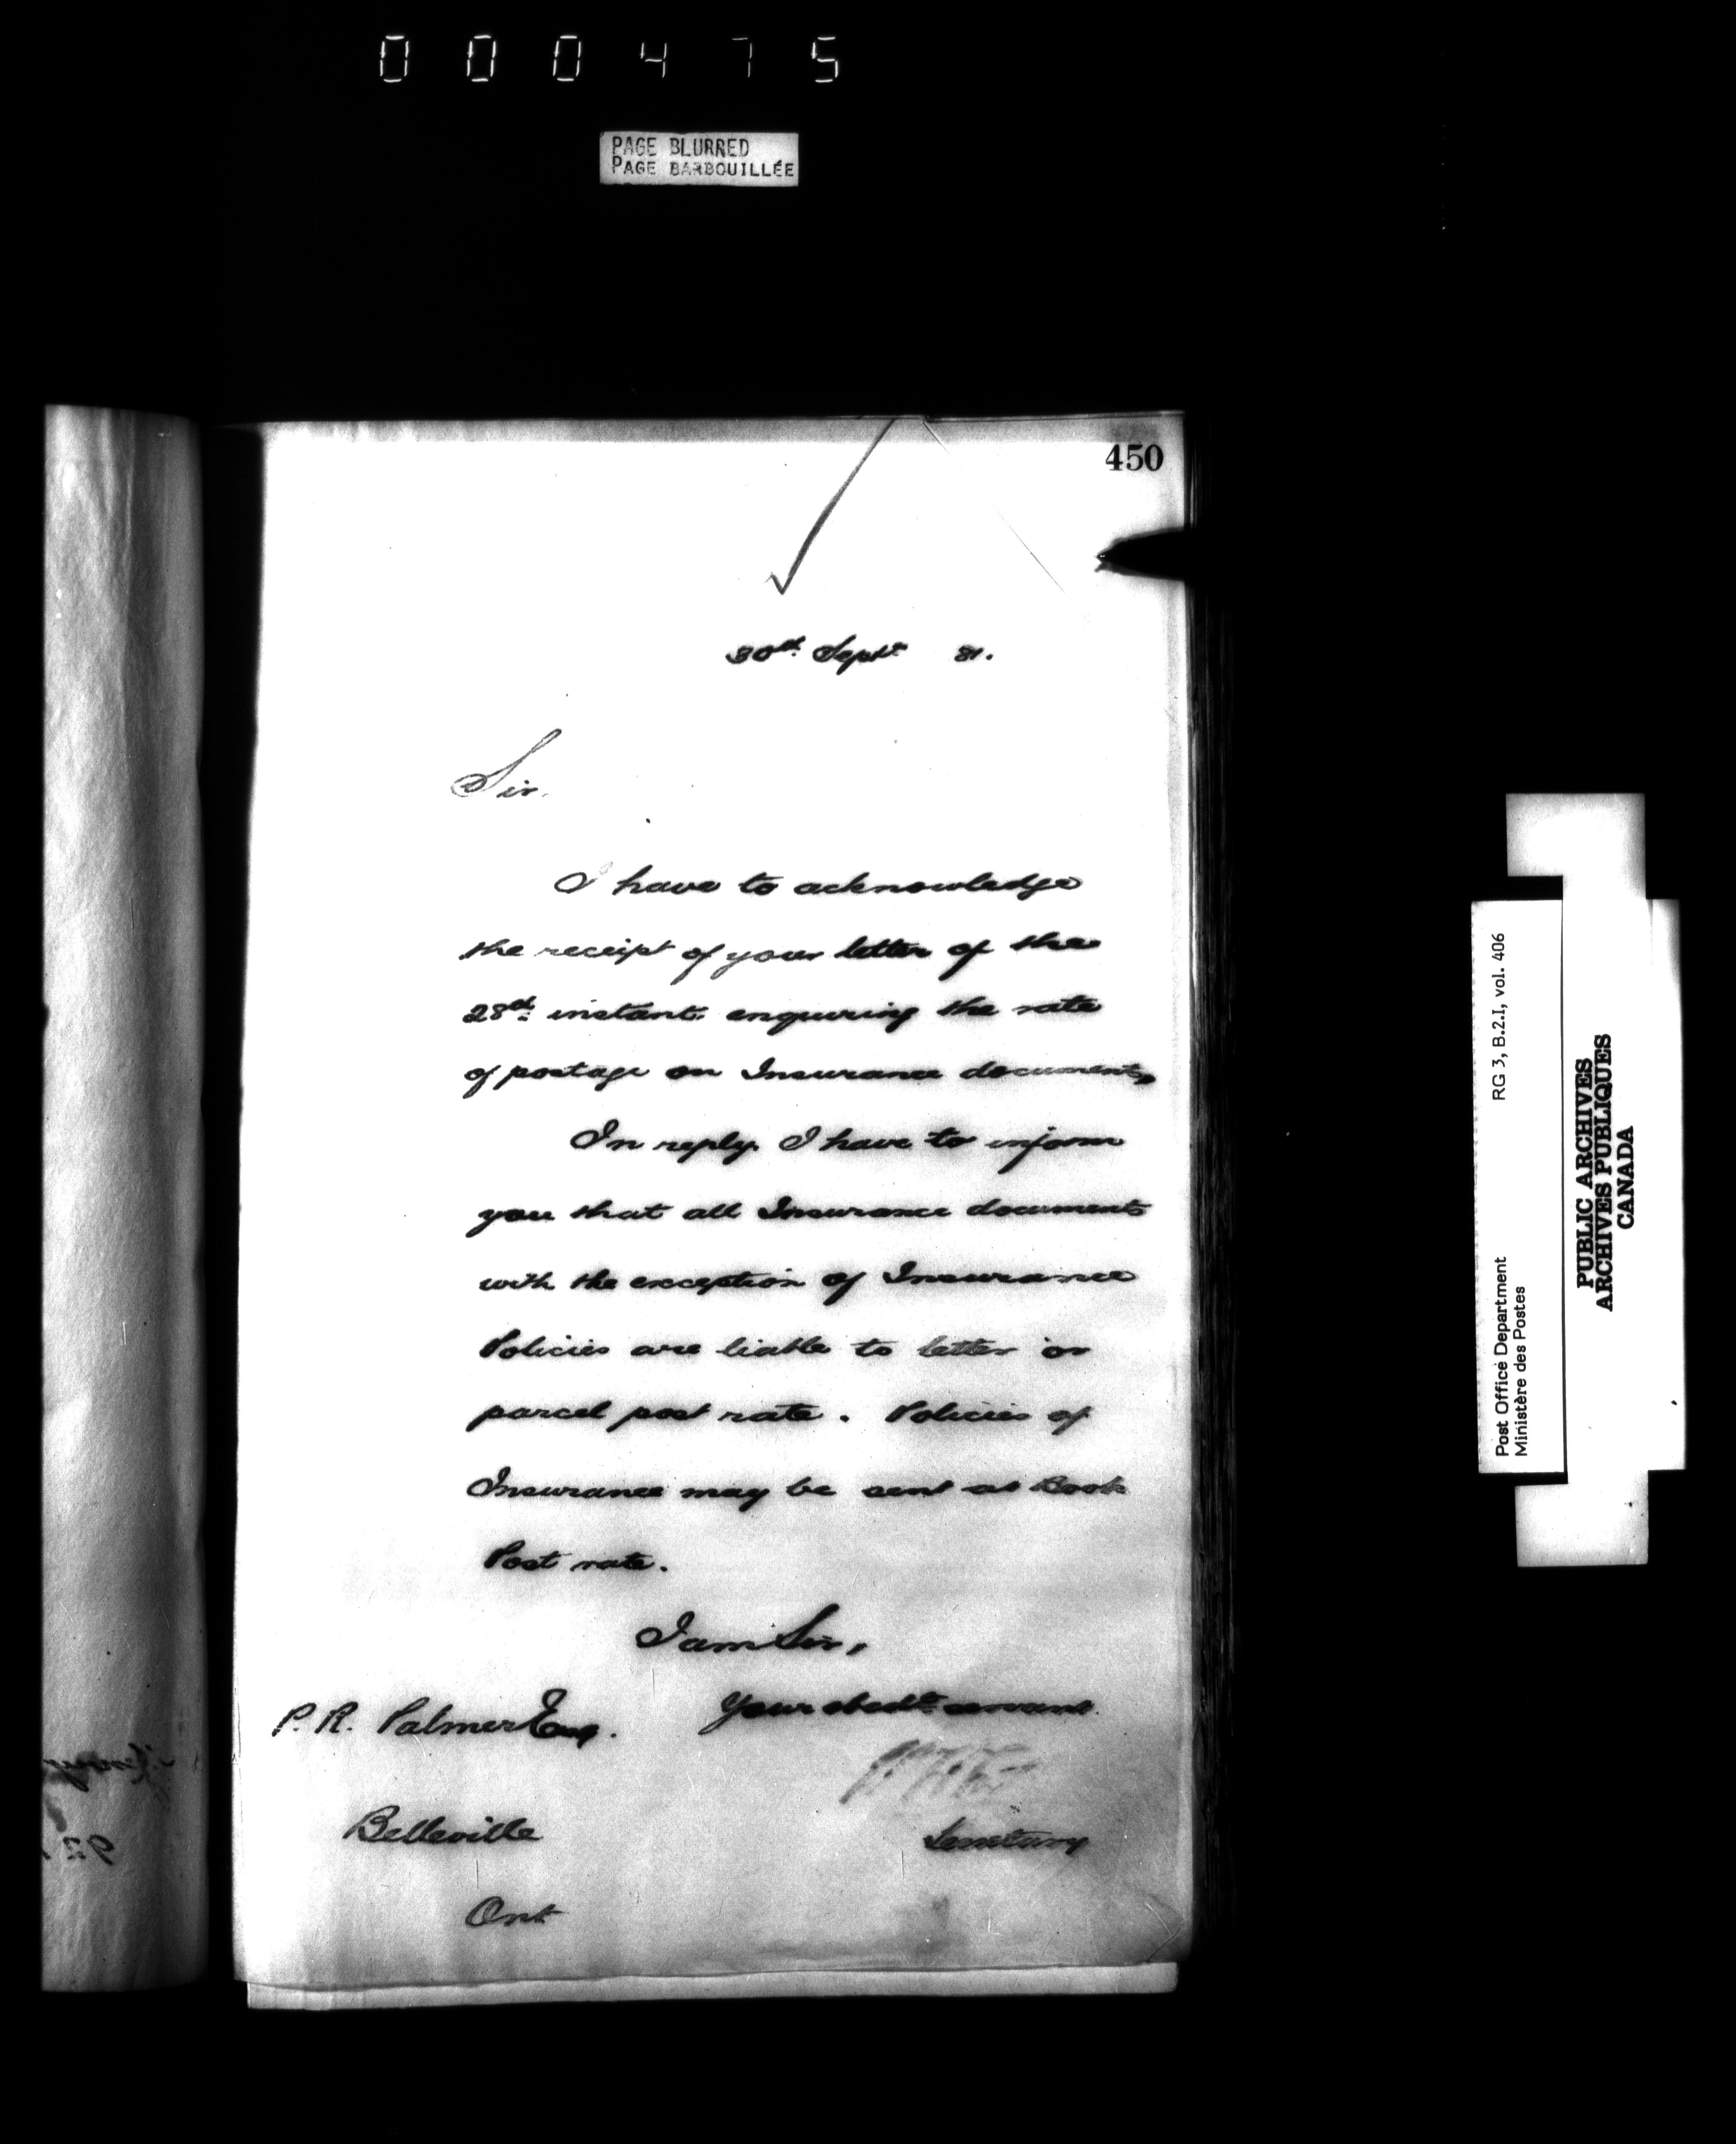 000475
PAGE BLURRED
PAGE BARBOUILLÉE
450
30th Sept 81.
Sir.
I have to acknowledge
the receipt of your letter of the
28th instant enquiring the rate
of postage on Insurance documents
In reply I have to inform
you that all Insurance documents
with the exception of Insurance
Policies are liable to letter or
parcel post rate. Policies of
Insurance may be sent at Book
Post rate.
I am Sir,
Your obedt servant
P. R. Palmer Esq.
Secretary
Belleville
Ont
RG 3, B.2.I, vol. 406
Post Office Department
Ministère des Postes
PUBLIC ARCHIVES
ARCHIVES PUBLIQUES
CANADA